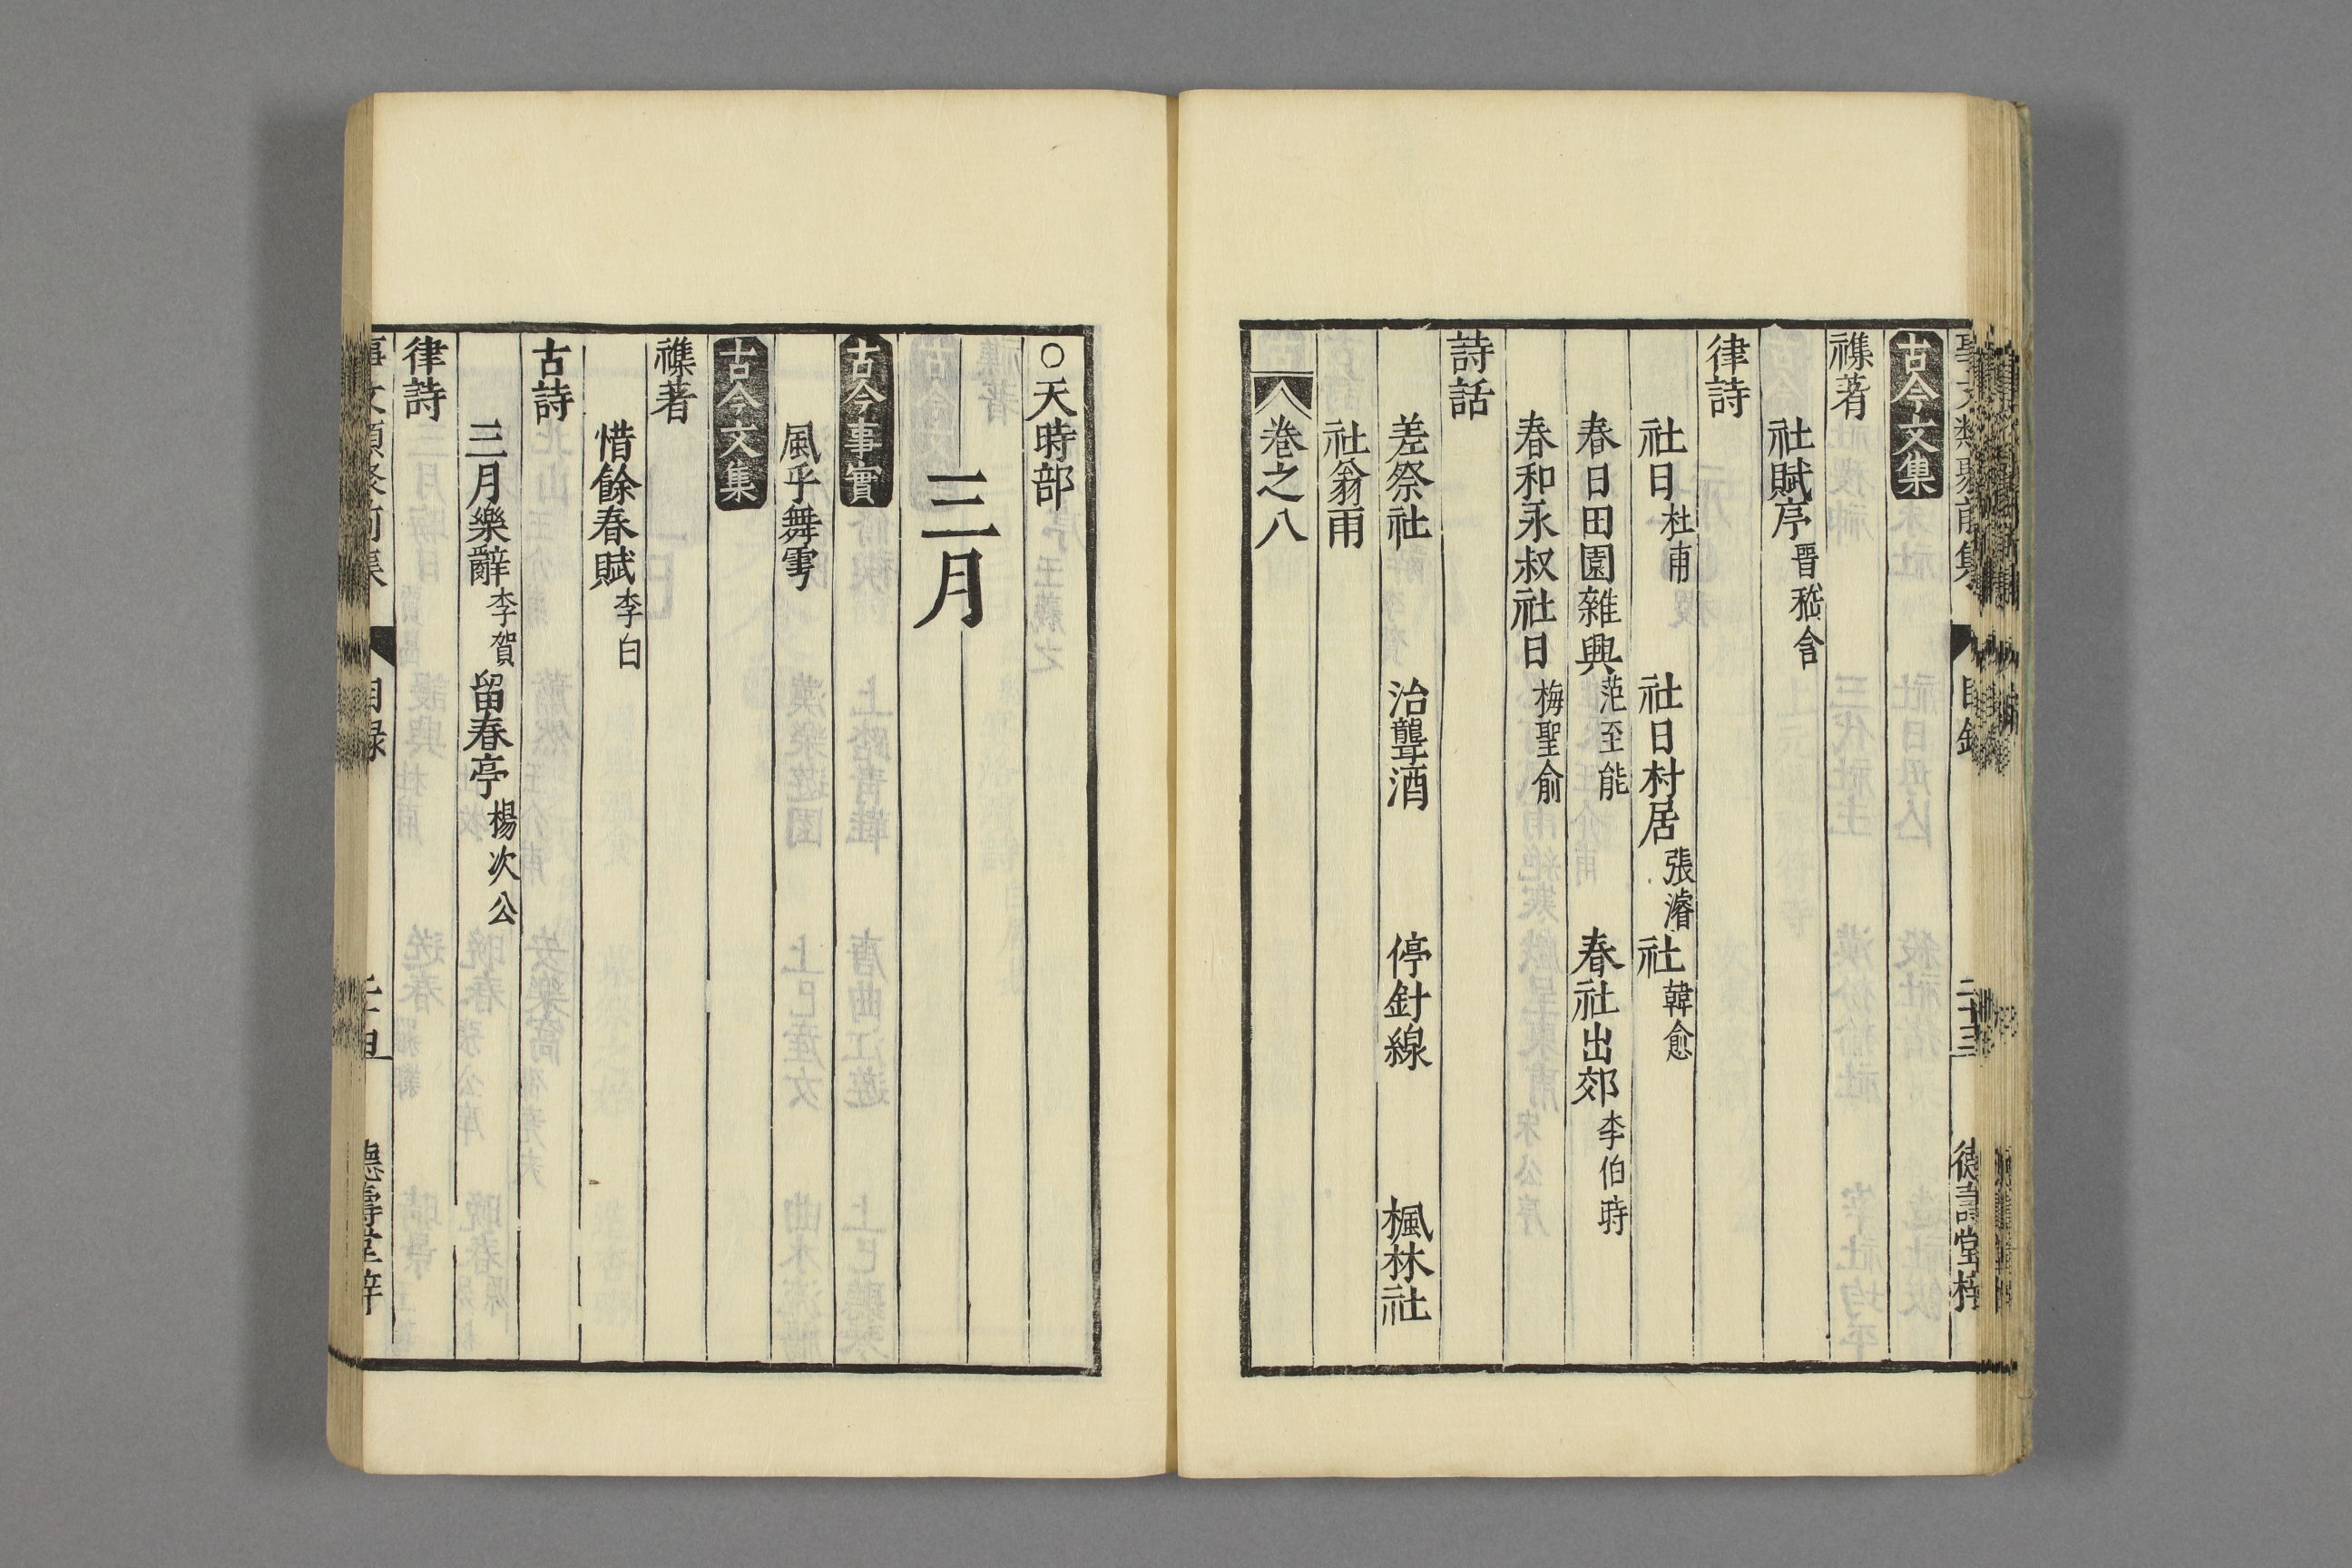 事文類聚前集 目錄 二十三 德壽堂梓
古今文集
襍著
社賦序 晋嵇含
律詩
社日 杜甫 社日村居 張濬 社 韓愈
春日田園雜興 范至能 春社出郊 李伯時
春和永叔社日 梅聖俞
詩話
差祭社 治聾酒 停針線 楓林社
社翁雨
卷之八
○天時部
三月
古今事實
風乎舞雩
古今文集
襍著
惜餘春賦 李白
古詩
三月樂辭 李賀 留春亭 楊次公
律詩
事文類聚前集 目録 德壽堂梓